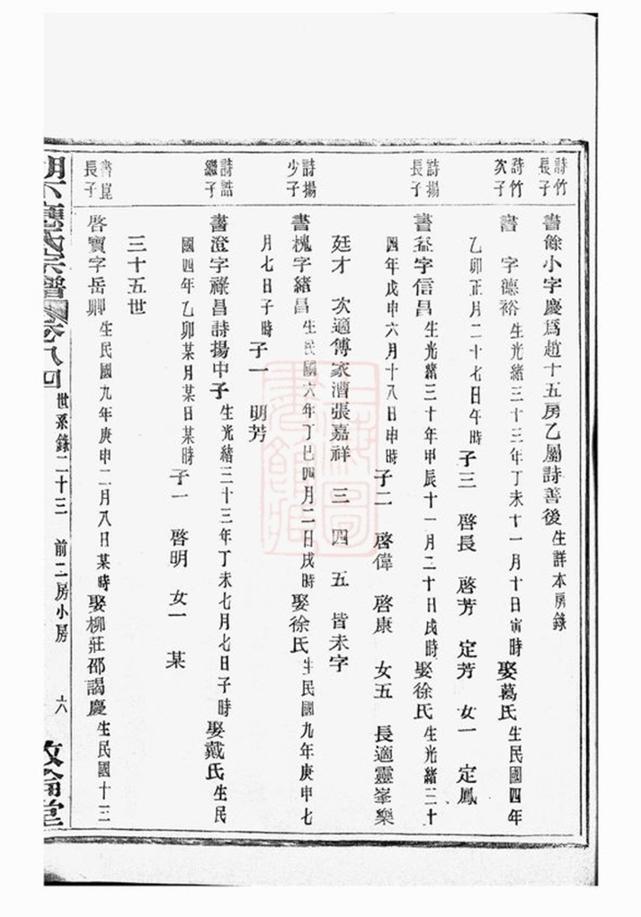 詩竹長子
書餘小字慶爲趙十五房乙屬詩善後生詳本房錄
詩竹次子
書 字德裕生光緒三十三年丁未十一月十日寅時娶葛氏生民國四年
乙卯正月二十七日午時子三 啓長 啓芳 定芳 女一 定鳳
詩揚長子
書益字信昌生光緒三十年甲辰十一月二十日戌時娶徐氏生光緒三十
四年戊申六月十八日申時子二 啓偉 啓康 女五 長適靈峯樂
廷才 次適傅家漕張嘉祥 三 四 五 皆未字
詩揚少子
書槐字緒昌生民國六年丁巳四月二日戌時娶徐氏生民國九年庚申七
月七日子時子一 明芳
詩誥繼子
書澄字祿昌詩揚中子生光緒三十三年丁未七月七日子時娶戴氏生民
國四年乙卯某月某日某時子一 啓明 女一 某
三十五世
書崑長子
啓寶字岳卿生民國九年庚申二月八日某時娶柳莊邵謁慶生民國十三
宗譜 卷八四 世系錄二十三 前二房小房 六 敦倫堂